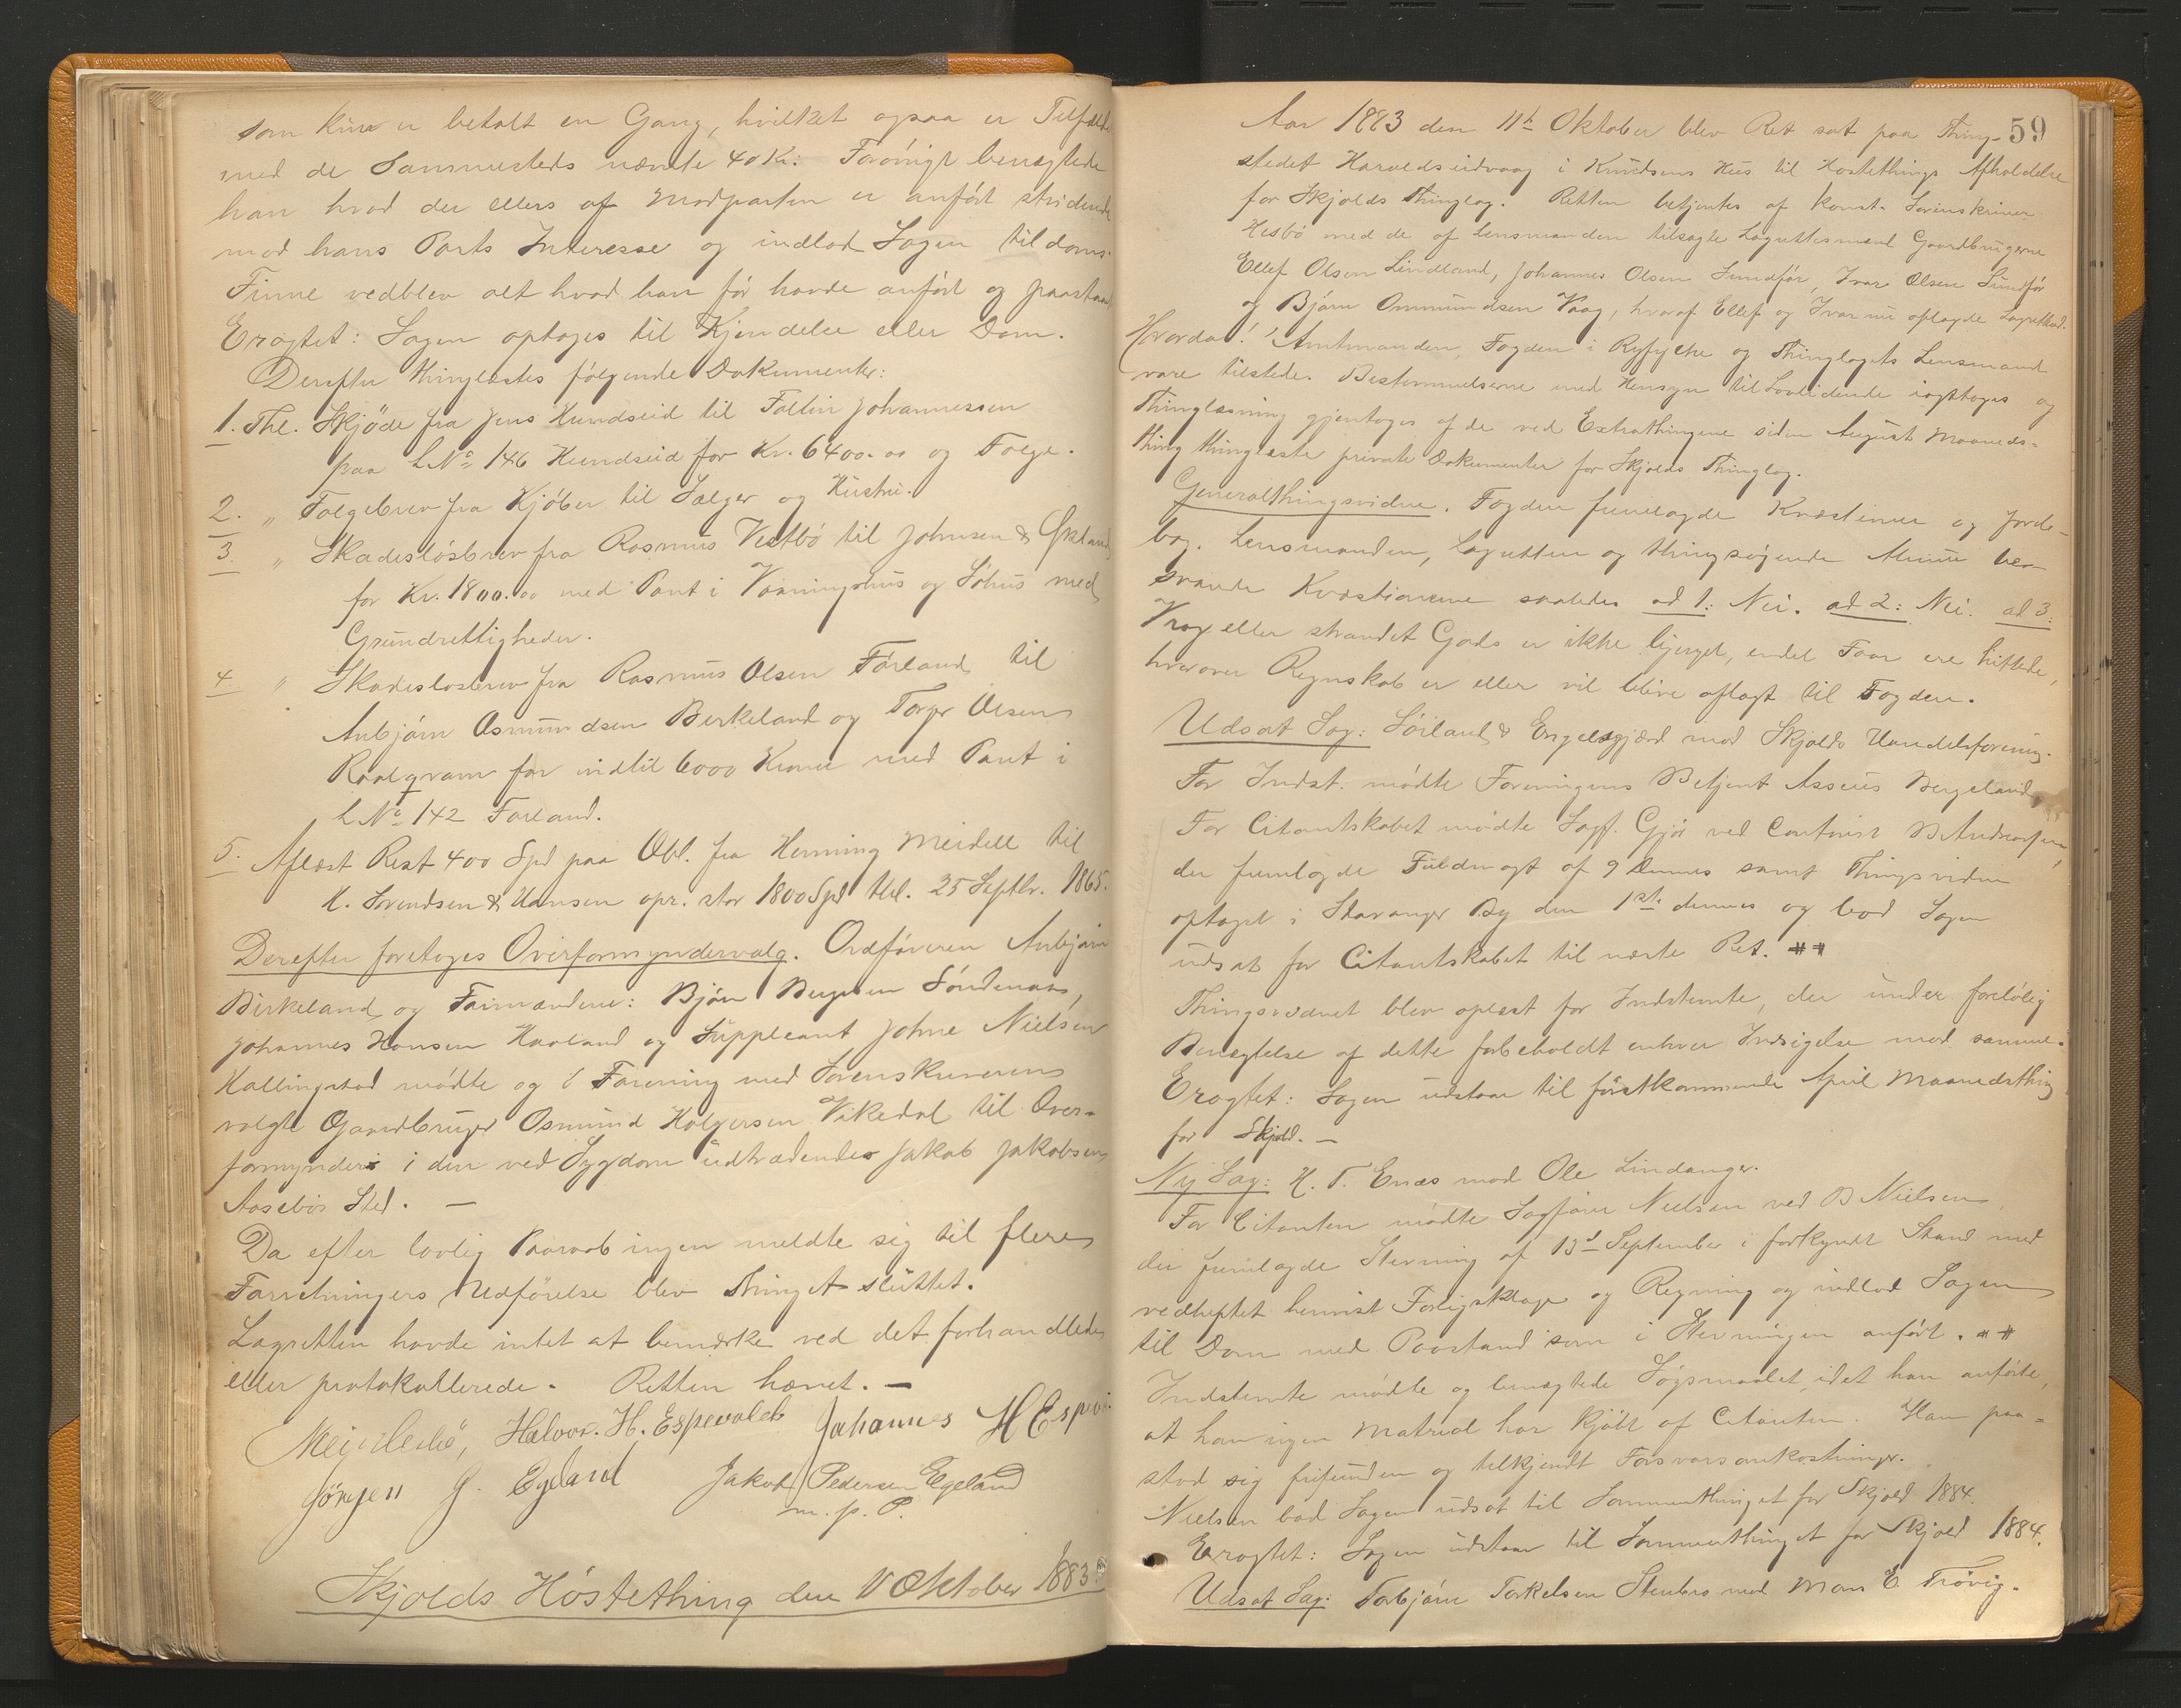 som kun er betalt en Gang, hvilket ogsaa er Tilfældet
med de Sammesteds nævnte 40 Kr: Forövrigt benægtede
han hvad der ellers af Modparten er anfört stridende
mod hans Parts Interesse og indlod Sagen til doms.
Finne vedblev alt hvad han för havde anfört og paastaaet
Eragtet: Sagen optages til Kjendelse eller Dom.
Derefter thinglæstes fölgende Dokumenter:
1. Thl. Skjöde fra Jens Hundseid til Johannessen
paa L No 146 Hundseid for Kr. 6400.00 og Folge.
2. " Folgebrev fra Kjöber til Sælger og Hustru.
3. " Skadeslösbrev fra Rasmus Vestbö til Johnsen &
for Kr. 1800.00 med Pant i Vaaningshus og Söhus med
Grundrettigheder.
4. " Skadeslosbrev fra Rasmus Olsen Förland til
Anbjörn Osmundsen Birkeland og Torger Olsen
for indtil 6000 Kroner med Pant i
L No 142 Forland.
5. Aflæst Rest 400 Spd paa Obl. fra Henning Meidell til
Svendsen & Hansen opr. stor 1800 Spd thl. 25 Septbr. 1865.
Derefter foretoges Overformyndervalg. Ordföreren Anbjörn
Birkeland og Formændene: Björn Söndenaa,
Johannes Hansen Haaland og Suppleant Johne Nielsen
Hallingstad mödte og i Forening med Sorenskriveren
valgte Gaardbruger Osmund Holgersen Vikedal til Over-
formynder i den ved Sygdom udtrædende Jakob Jakobsen
Aasebös Sted. —
Da efter lovlig Paaraab ingen meldte sig til flere
Forretningers Udförelse blev Thinget sluttet.
Lagretten havde intet at bemærke ved det forhandlede
eller protokollerede. Retten hævet. —
Halvor. H. Espevold Johannes H Espev
Jörgen J. Egeland Jakob Pedersen Egeland
m. p. P.
Skjolds Höstething den 11 Oktober 1883.
59
Aar 1883 den 11te Oktober blev Ret sat paa Thing-
stedet Haraldseidvaag i Knudsens Hus til Höstethings Afholdelse
for Skjolds Thinglag. Retten betjentes af konst. Sorenskriver
Hesbö med de af Lensmanden tilsagte Lagrettesmænd Gaardbrugerne
Ellef Olsen Lindland, Johannes Olsen Sundför, Ivar Olsen Sundför
og Björn Ommundsen Vaag, hvoraf Ellef og Ivar nu aflagde Lagretteed.
Hvorda! Amtmanden, Fogden i Ryfylke og Thinglagets Lensmand
vare tilstede. Bestemmelserne med Hensyn til Lovlidende iagttoges og
Thinglæsning gjentoges af de ved Extrathingene siden August Maaneds-
thing thinglæste private Dokumenter for Skjolds Thinglag.
Generalthingsvidne. Fogden fremlagde Kvæstioner og Jorde-
bog. Lensmanden, Lagretten og thingsögende Almue be-
svarede Kvæstionerne saaledes ad 1: Nei. ad 2: Nei. ad 3:
Vrag eller strandet Gods er ikke bjerget, endel Faar ere hittede,
hvorover Regnskab er eller vil blive aflagt til Fogden.
Udsat Sag: Söiland & Engelsgjærd mod Skjolds Handelsforening.
For Indst. mödte Foreningens Betjent Asseus Bergeland
For Citantskabet mödte Sagf. Gjör ved Contorist B Andreassen,
der fremlagde Fuldmagt af 9 Dennes samt Thingsvidne
optaget i Stavanger By den 1ste dennes og bad Sagen
udsat for Citantskabet til næste Ret. ##
Thingsvidnet blev oplæst for Indstevnte, der under forelöbig
Benægtelse af dette forbeholdt enhver Indsigelse mod samme.
Eragtet: Sagen udstaar til förstkommende April Maanedsthing
for Skjold. —
Ny Sag: H. T. Enæs mod Ole Lindanger.
For Citanten mödte Sagförer Nielsen ved B Nielsen
der fremlagde Stevning af 13d September i forkyndt Stand med
vedheftet henvist Forligsklage og Regning og indlod Sagen
til Dom med Paastand som i Stevningen anfört. ##
Indstevnte mödte og benægtede Sögsmaalet, idet han anförte,
at han ingen Matrial har kjöbt af Citanten. Han paa-
stod sig frifunden og tilkjendt Forsvarsomkostninger.
Nielsen bad Sagen udsat til Sommerthinget for Skjold 1884.
Eragtet: Sagen udstaar til Sommerthinget for Skjold 1884.
Udsat Sag: Torbjörn Torkelsen Stenbro mod Mons E. Trövig.